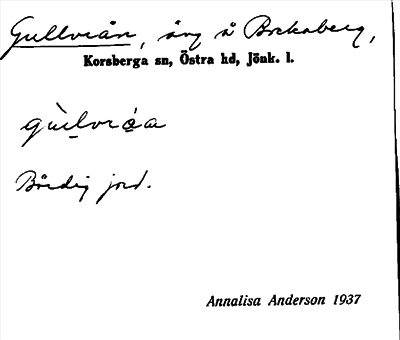 Gullviån, äng å Bockaberg,
Korsberga sn, Östra hd, Jönk. l.
Bördig jord.
Annalisa Anderson 1937